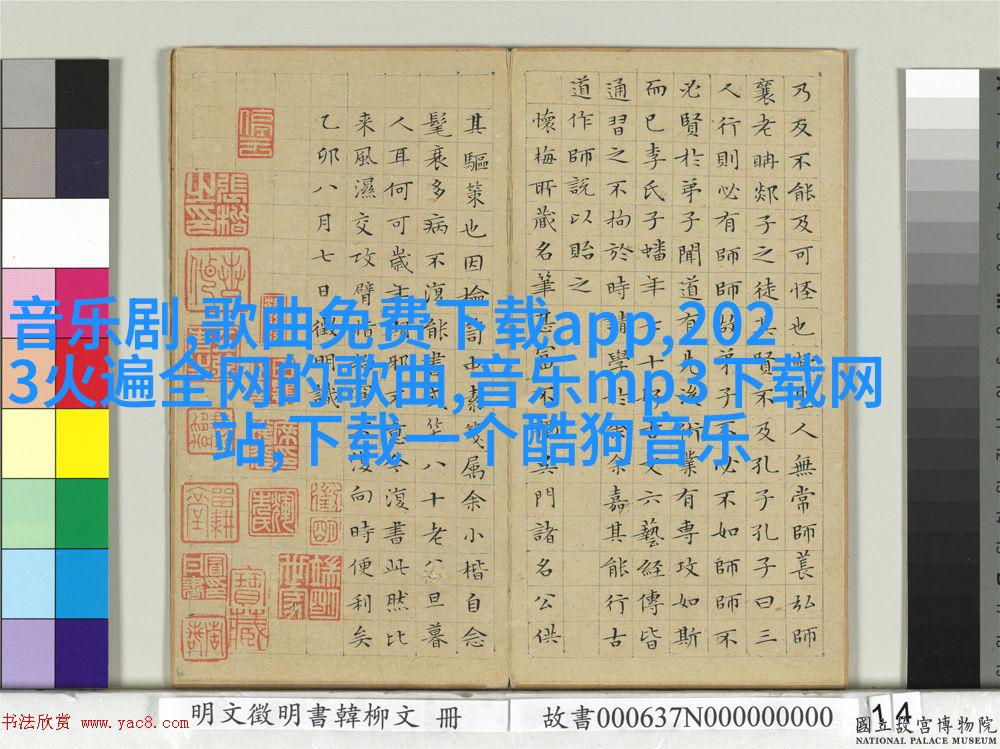 音乐剧,歌曲免费下载app,202
3火遍全网的歌曲,音乐mp3下载网
站,下载一个酷狗音乐
乃反不能及可怪也歟聖人無常師萇弘師
襄老聃郯子之徒其賢不及孔子孔子曰三
人行則必有師師故弟子不必不如師師不
必賢於弟子聞道有先後術業有專攻如斯
而已李氏子蟠年十七好古文六藝經傳皆
通習之不拘於時請學於余余嘉其能行古
道作師說以貽之
懷梅所藏名筆甚富不 吳門諸名公供
其驅策也因檢 中素箋属余小楷自念
髦衰多病不復能書 八十老公旦暮
人耳何可歲 邪 意今復書此然比
来風濕交攻臂指 向時便利矣
乙卯八月七日徵明識
明文徵明書韓柳文 冊
故書000637N000000000
14
國立故宮博物院
NATIONAL PALACE MUSEUM
书法欣赏 www.yac8.com